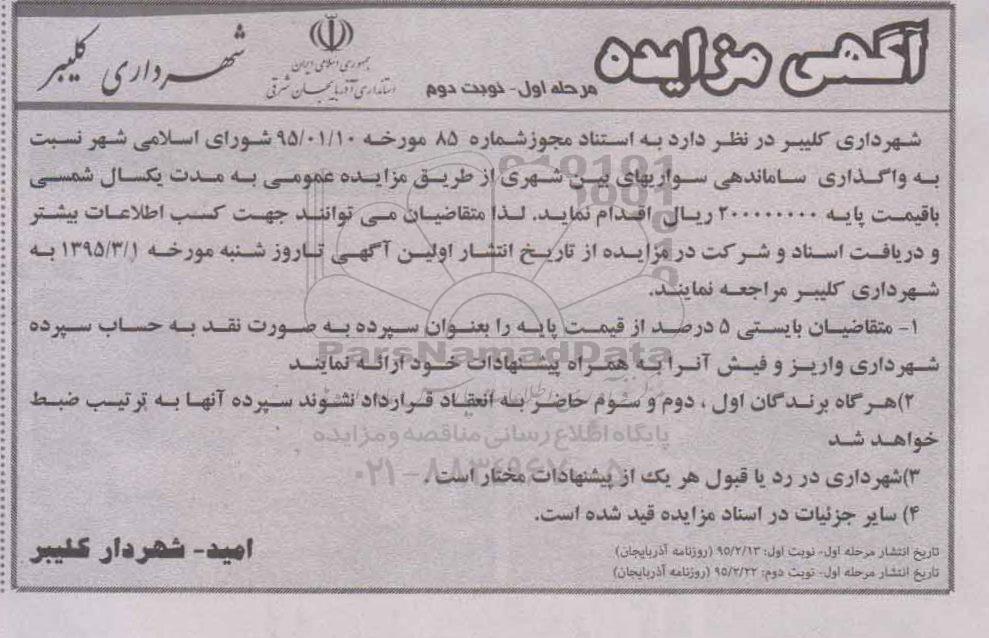 آگهی مزایده
مرحله اول- نوبت دوم
جمهوری اسلامی ایران
استانداری آذربایجان شرقی
شهرداری کلیبر
شهرداری کلیبر در نظر دارد به استناد مجوزشماره ۸۵ مورخه ۹۵/۰۱/۱۰ شورای اسلامی شهر نسبت
به واگذاری ساماندهی سواریهای بین شهری از طریق مزایده عمومی به مدت یکسال شمسی
باقیمت پایه ۲۰۰۰۰۰۰۰۰ ریال اقدام نماید. لذا متقاضیان می توانند جهت کسب اطلاعات بیشتر
و دریافت اسناد و شرکت در مزایده از تاریخ انتشار اولین آگهی تاروز شنبه مورخه ۱۳۹۵/۳/۱ به
شهرداری کلیبر مراجعه نمایند.
۱- متقاضیان بایستی ۵ درصد از قیمت پایه را بعنوان سپرده به صورت نقد به حساب سپرده
شهرداری واریز و فیش آنرا به همراه پیشنهادات خود ارائه نمایند
۲)هرگاه برندگان اول ، دوم و سوم حاضر به انعقاد قرارداد نشوند سپرده آنها به ترتیب ضبط
خواهد شد
۳)شهرداری در رد یا قبول هر یک از پیشنهادات مختار است .
۴) سایر جزئیات در اسناد مزایده قید شده است.
تاریخ انتشار مرحله اول- نوبت اول: ۹۵/۲/۱۳ (روزنامه آذربایجان)
تاریخ انتشار مرحله اول- نوبت دوم: ۹۵/۲/۲۲ (روزنامه آذربایجان)
امید- شهردار کلیبر
ParsNamadData
پایگاه اطلاع رسانی مناقصه و مزایده